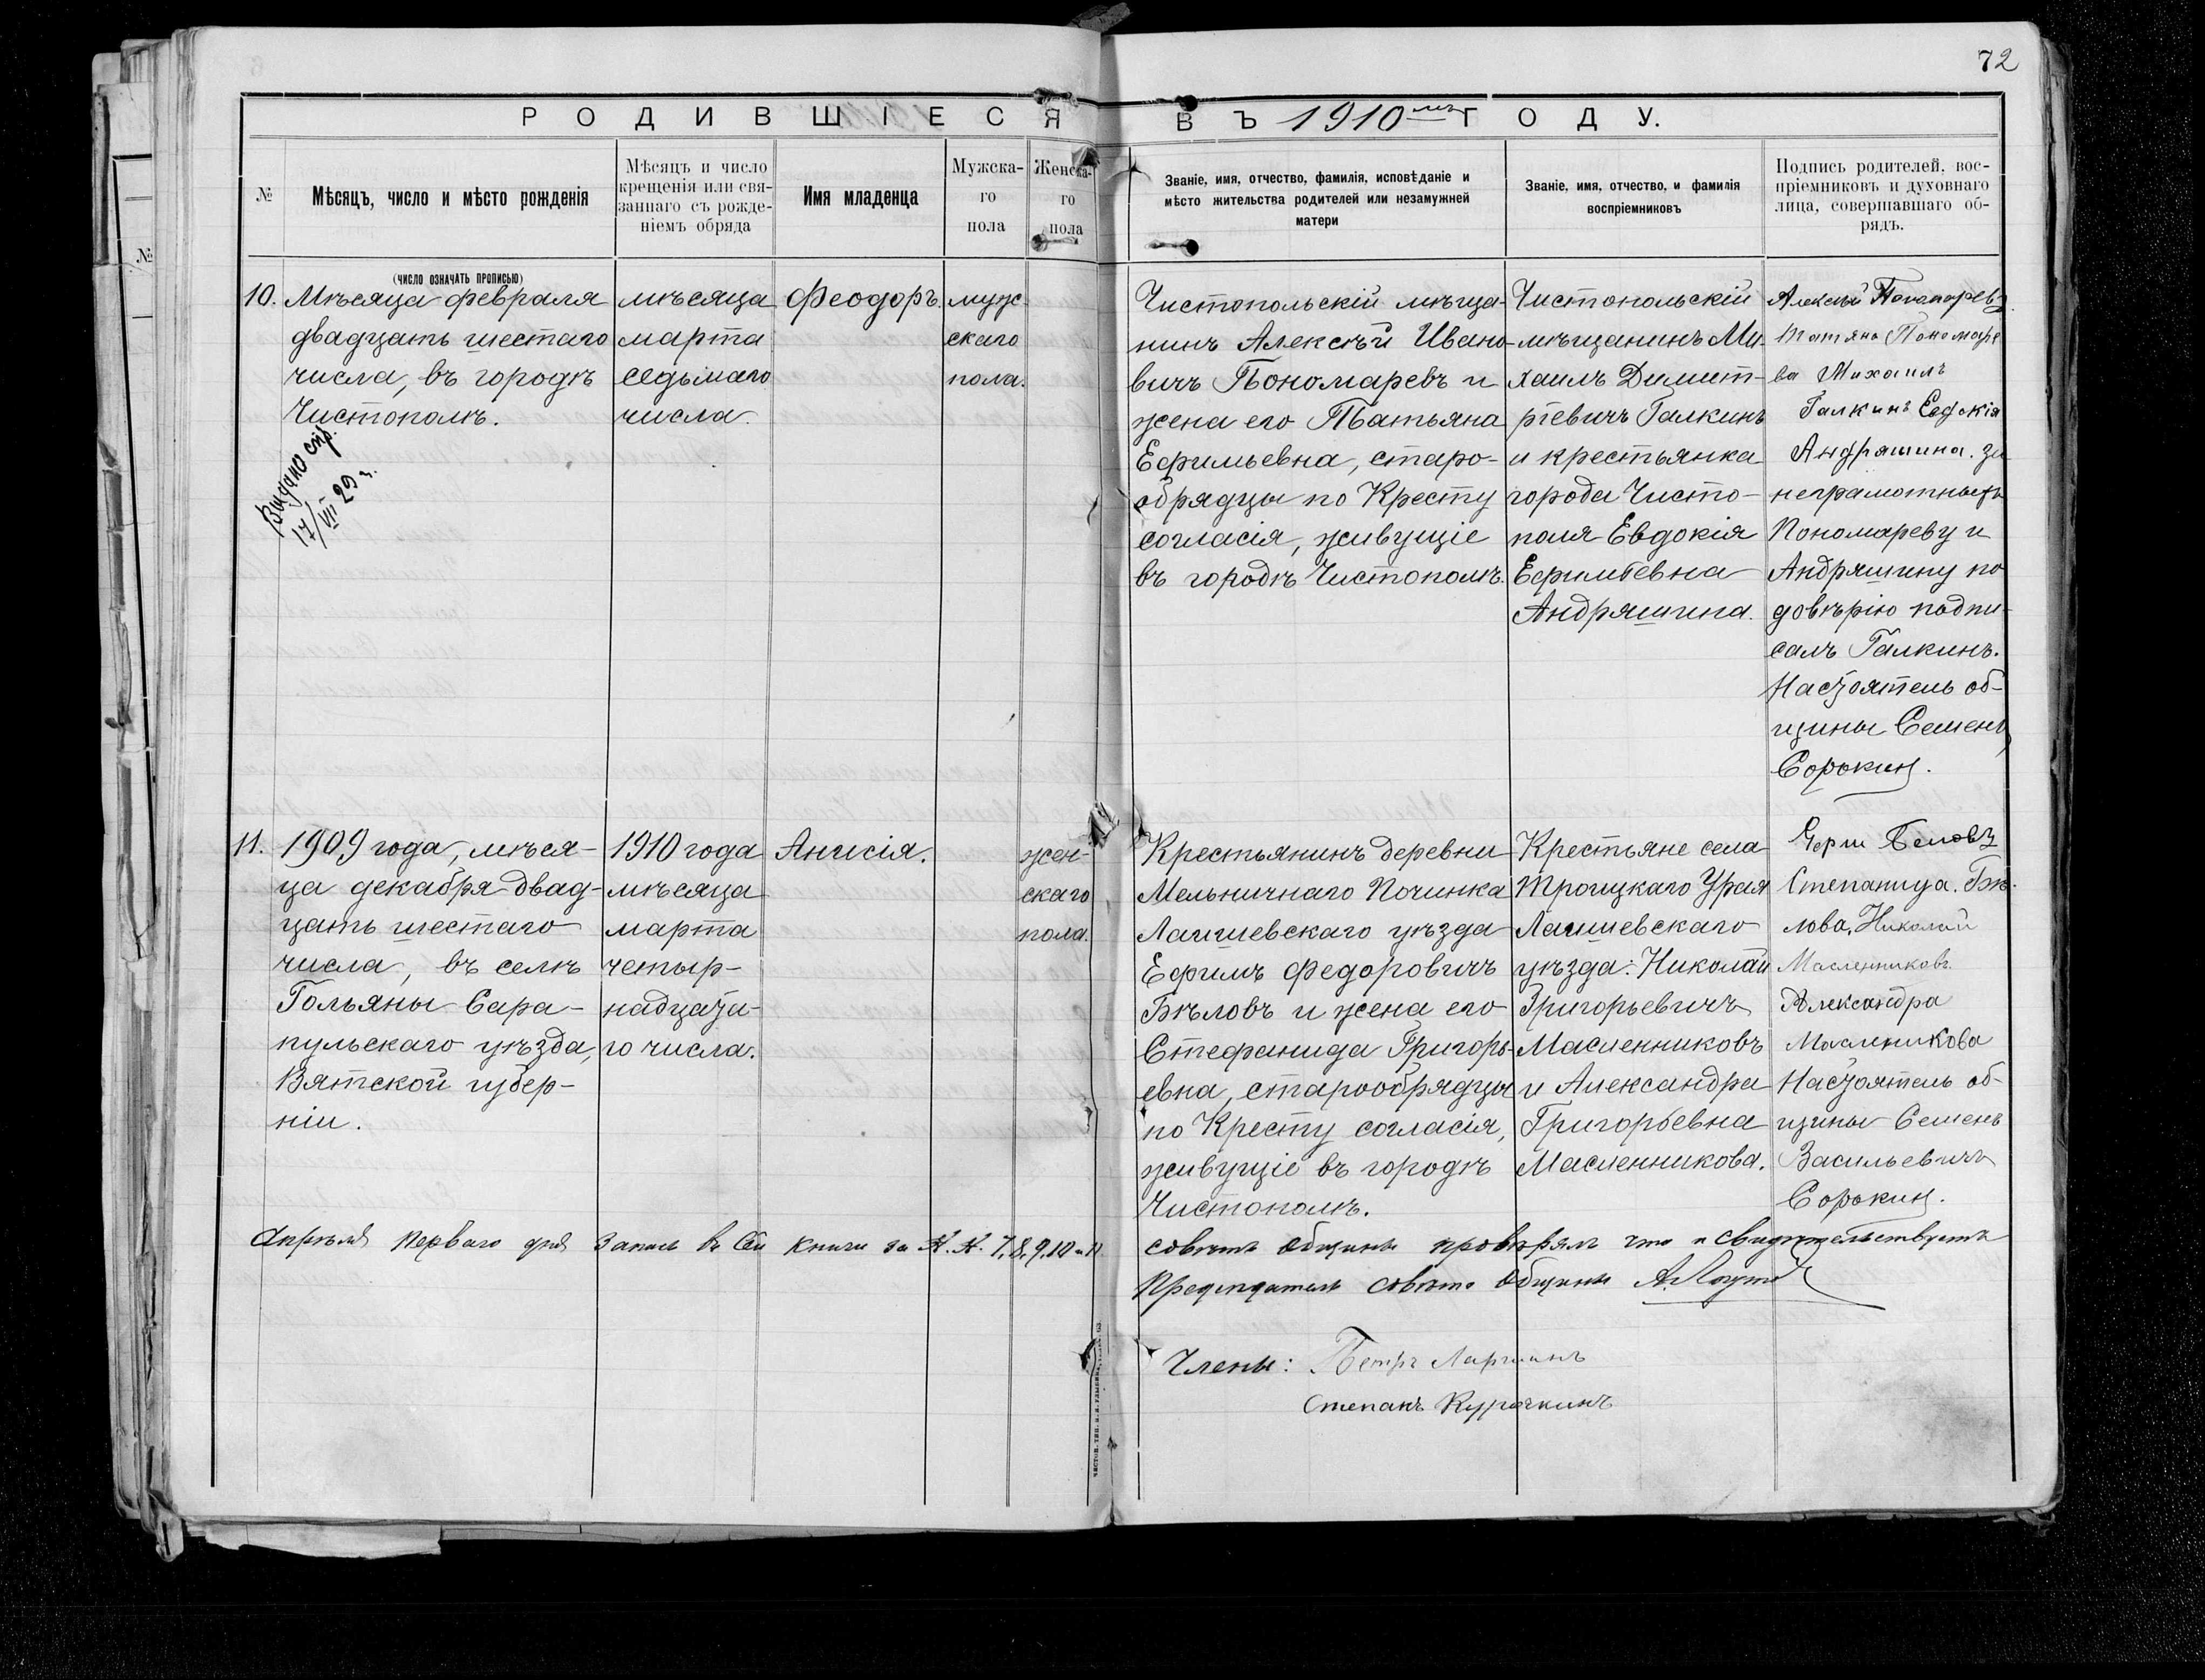 72
РОДИВШІЕСЯ ВЪ 1910мъ ГОДУ.
№
Мѣсяцъ, число и мѣсто рожденія
Мѣсяцъ и число
крещенія или свя-
заннаго съ рожде-
ніемъ обряда
Имя младенца
Мужска-
го
пола
Женска-
го
пола
Званіе, имя, отчество, фамилія, исповѣданіе и
мѣсто жительства родителей или незамужней
матери
Званіе, имя, отчество, и фамилія
воспріемниковъ
Подпись родителей, вос-
пріемниковъ и духовнаго
лица, совершавшаго об-
рядъ.
(число означать прописью)
10.
Мѣсяца февраля
двадцать шестаго
числа, въ городѣ
Чистополѣ.
Выдано спр.
17/VII 29 г.
мѣсяца
марта
седьмаго
числа.
Феодоръ.
муж-
скаго
пола.
Чистопольскій мѣща-
нинъ Алексѣй Ивано-
вичъ Пономаревъ и
жена его Татьяна
Ефимьевна, старо-
обрядцы по Кресту
согласія, живущіе
въ городѣ Чистополѣ.
Чистопольскій
мѣщанинъ Ми-
хаилъ Димит-
ріевичъ Галкинъ
и крестьянка
города Чисто-
поля Евдокія
Ефимьевна
Андряшина.
Алексѣй Пономаревъ
Татяна Пономаре
ва Михаилъ
Галкинъ Евдокія
Андряшина. за
неграмотныхъ
Пономареву и
Андряшину по
довѣрію подпи-
салъ Галкинъ.
Настоятель об-
щины Семенъ
Сорокин.
11.
1909 года, мѣся-
ца декабря двад-
цать шестаго
числа, въ селѣ
Гольяны Сара-
пульскаго уѣзда,
Вятской губер-
ніи.
1910 года
мѣсяца
марта
четыр-
надцата-
го числа.
Анисія.
жен-
скаго
пола.
Крестьянинъ деревни
Мельничнаго Починка
Лаишевскаго уѣзда
Ефимъ Федоровичъ
Бѣловъ и жена его
Стефанида Григорь-
евна, старообрядцы
по Кресту согласія,
живущіе въ городѣ
Чистополѣ.
Крестьяне села
Троицкаго Урая
Лаишевскаго
уѣзда: Николай
Григорьевичъ
Масленниковъ
и Александра
Григорьевна
Масленникова.
Беловъ
Степанида. Бѣ-
лова. Николай
Масленниковъ.
Александра
Маслениkова
Настоятель об-
щины Семенъ
Васильевичъ
Сорокин.
Апрѣля перваго дня Запись въ сей книги за №. №. 7, 8, 9, 10 и 11
совѣтъ общины провѣрялъ что и свидѣтельствуетъ
Председатель совѣта общины
Члены: Петръ
Степанъ Курочкинъ